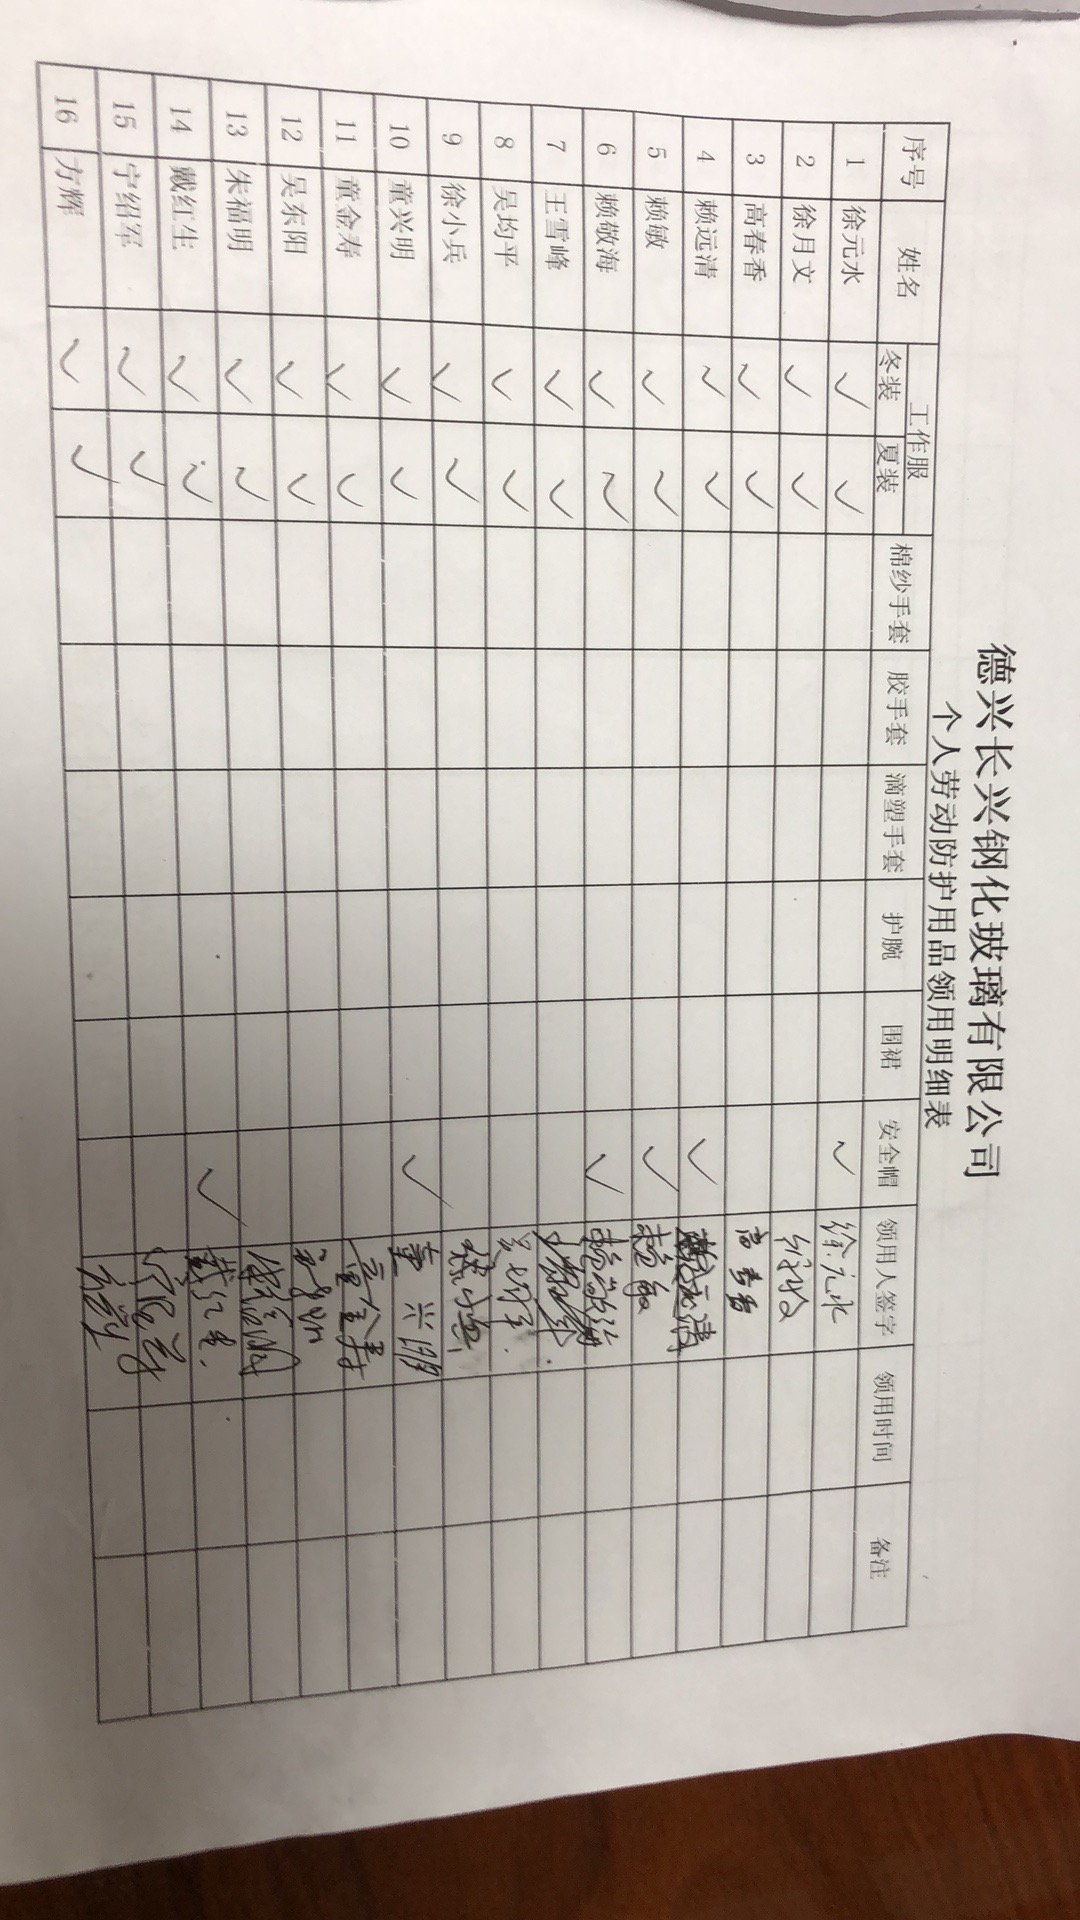 德兴长兴钢化玻璃有限公司
个人劳动防护用品领用明细表
序号 姓名 工作服 冬装 夏装 棉纱手套 胶手套 滴塑手套 护腕 围裙 安全帽 领用人签字 领用时间 备注
1 徐元水 ✓ ✓ ✓ 徐元水
2 徐月文 ✓ ✓
3 高春香 ✓ ✓ 高春香
4 赖远清 ✓ ✓ ✓ 赖远清
5 赖敏 ✓ ✓ ✓ 赖敏
6 赖敬海 ✓ ✓ ✓ 赖敬海
7 王雪峰 ✓ ✓
8 吴均平 ✓ ✓ 吴均平
9 徐小兵 ✓ ✓ 徐小兵
10 童兴明 ✓ ✓ ✓ 童兴明
11 童金寿 ✓ ✓ 童金寿
12 吴东阳 ✓ ✓
13 朱福明 ✓ ✓ 朱福明
14 戴红生 ✓ ✓ ✓ 戴红生
15 宁绍军 ✓ ✓
16 方辉 ✓ ✓ 方辉